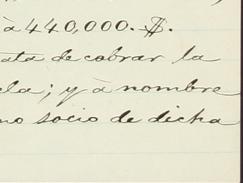 à 440,000. $.
ata de cobrar la
ela; y à nombre
no socio de dicha